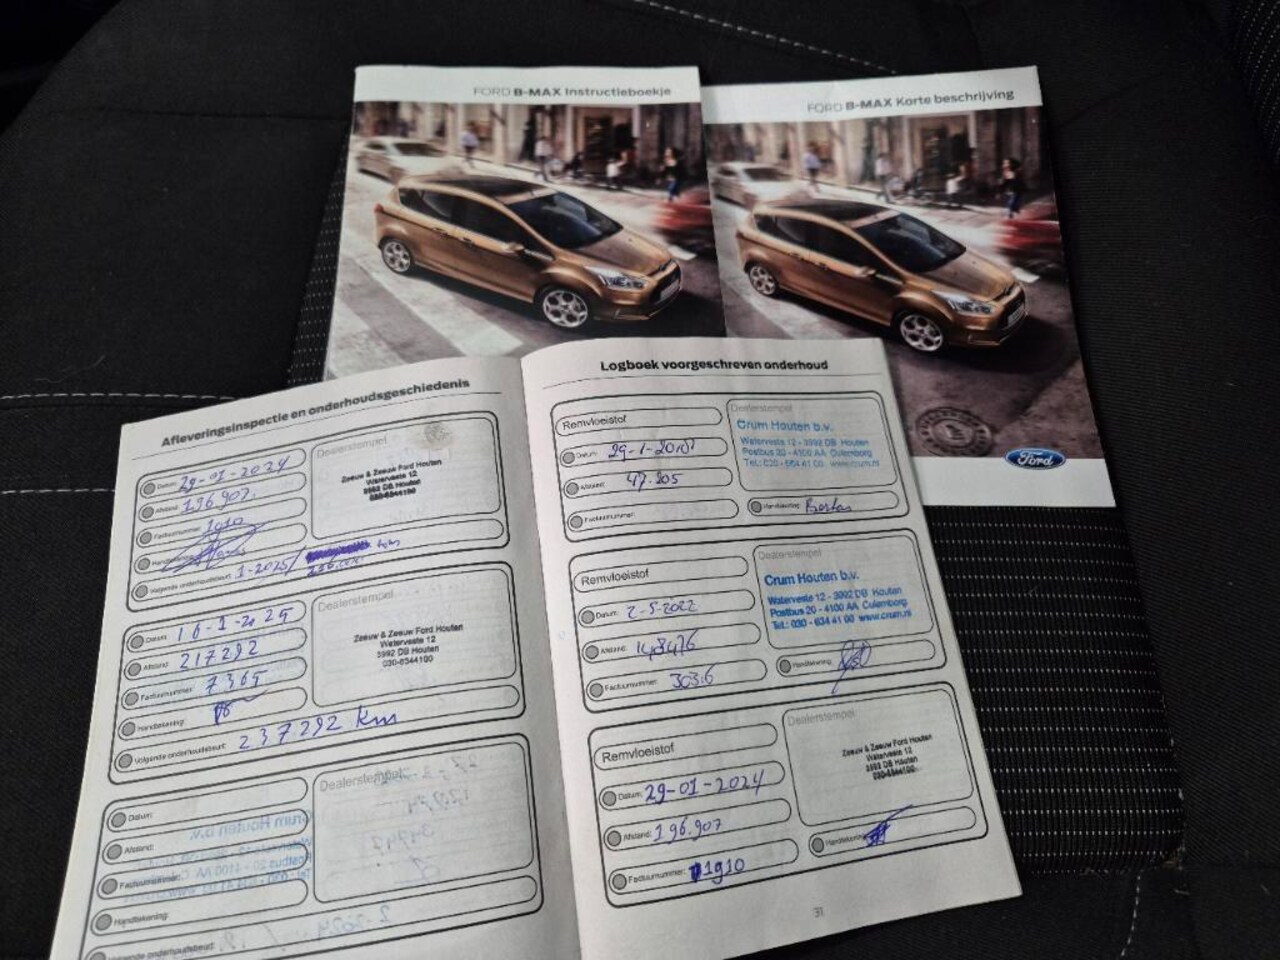 FORD B-MAX Instructieboekje
FORD B-MAX Korte beschrijving
Ford
Afleveringsinspectie en onderhoudsgeschiedenis
Datum: 29-01-2024
Afstand: 196.907.
Factuurnummer: 1910
Volgende onderhoudsbeurt: 1-2025/ km
Dealerstempel
Zeeuw & Zeeuw Ford Houten
Waterveste 12
3992 DB Houten
030-6344100
Datum: 16-1-2025
Afstand: 217292
Factuurnummer: 7365
Handtekening:
Volgende onderhoudsbeurt: 237.292 km
Dealerstempel
Zeeuw & Zeeuw Ford Houten
Waterveste 12
3992 DB Houten
030-6344100
Datum:
Afstand:
Factuurnummer:
Handtekening:
Volgende onderhoudsbeurt:
Dealerstempel
Logboek voorgeschreven onderhoud
Remvloeistof
Datum: 29-1-201
Afstand: 47.205
Factuurnummer:
Dealerstempel
Crum Houten b.v.
Waterveste 12 - 3992 DB Houten
Postbus 20 - 4100 AA Culemborg
Tel.: 030 - 634 41 00 www.crum.nl
Handtekening:
Remvloeistof
Datum: 2-5-2022
Afstand: 148476
Factuurnummer: 3036
Dealerstempel
Crum Houten b.v.
Waterveste 12 - 3992 DB Houten
Postbus 20 - 4100 AA Culemborg
Tel.: 030 - 634 41 00 www.crum.nl
Handtekening:
Remvloeistof
Datum: 29-01-2024
Afstand: 196.907
Factuurnummer: 1910
Dealerstempel
Zeeuw & Zeeuw Ford Houten
Waterveste 12
3992 DB Houten
030-6344100
Handtekening:
31